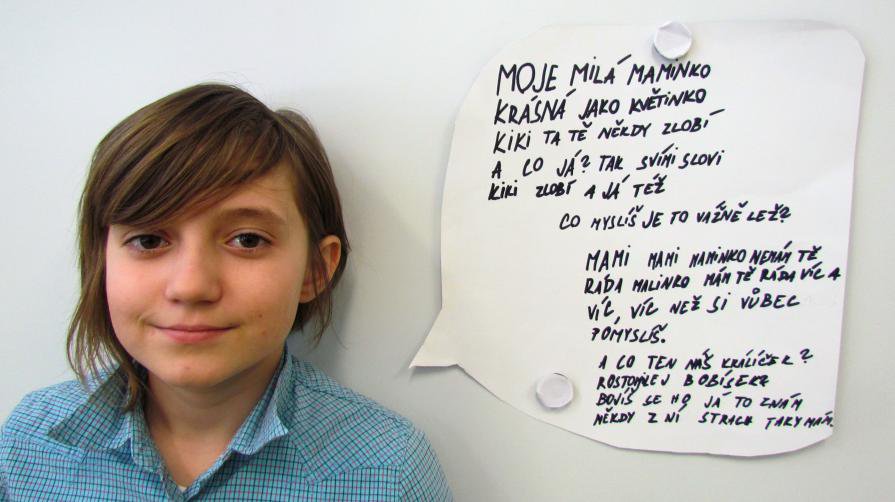 MOJE MILÁ MAMINKO
KRÁSNÁ JAKO KVĚTINKO
KIKI TA TĚ NĚKDY ZLOBÍ
A CO JÁ? TAK SVÍMI SLOVI
KIKI ZLOBÍ A JÁ TÉŽ
CO MYSLÍŠ JE TO VÁŽNĚ LEŽ?
MAMI MAMI MAMINKO NEMÁM TĚ
RÁDA MALINKO MÁM TĚ RÁDA VÍC A
VÍC, VÍC NEŽ SI VŮBEC
POMYSLÍŠ.
A CO TEN NÁŠ KRÁLÍČEK?
BOBÍSEK?
BOJÍŠ SE HO JÁ TO ZNÁM
NĚKDY Z NÍ STRACH TAKY MÁM.